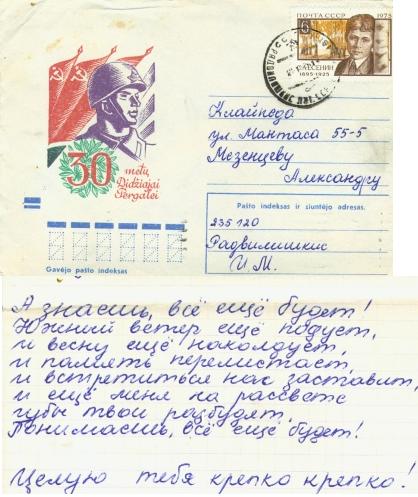 ПОЧТА СССР 1975
6
С.А. ЕСЕНИН
1895-1925
30
metų
Didžiajai
Pergalei
Клайпеда
ул. Мантаса 55-5
Мезенцеву
Александру
Pašto indeksas ir siuntėjo adresas.
235120
Радвилишкис
И.М.
Gavėjo pašto indeksas
А знаешь, всё ещё будет!
Южный ветер ещё подует,
и весну ещё наколдует,
и память перелистает,
и встретиться нас заставит,
и ещё меня на рассвете
губы твои разбудят.
Понимаешь, всё ещё будет!
Целую тебя крепко крепко!